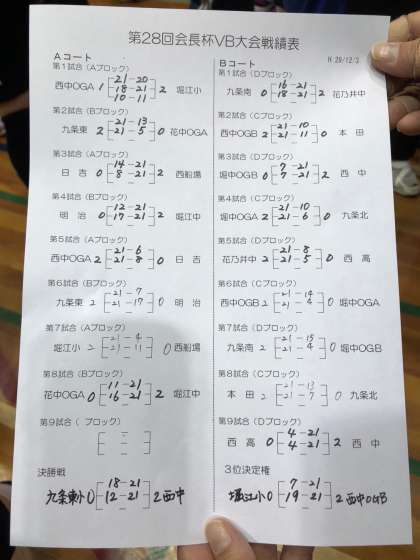 第28回会長杯VB大会戦績表
H 29/12/3
Aコート
第1試合(Aブロック)
21-20
西中OGA 1 18-21 2 堀江小
10-11
第2試合(Bブロック)
21-13
九条東 2 21-5 0 花中OGA
第3試合(Aブロック)
14-21
日吉 0 8-21 2 西船場
第4試合(Bブロック)
12-21
明治 0 17-21 2 堀江中
第5試合(Aブロック)
21-6
西中OGA 2 21-8 0 日吉
第6試合(Bブロック)
21-7
九条東 2 21-17 0 明治
第7試合(Aブロック)
21-4
堀江小 2 21-11 0 西船場
第8試合(Bブロック)
11-21
花中OGA 0 16-21 2 堀江中
第9試合( ブロック)
決勝戦
18-21
九条東小 0 12-21 2 西中
Bコート
第1試合(Dブロック)
16-21
九条南 0 18-21 2 花乃井中
第2試合(Cブロック)
21-10
西中OGB 2 21-11 0 本田
第3試合(Dブロック)
7-21
堀中OGB 0 7-21 2 西中
第4試合(Cブロック)
21-10
堀中OGA 2 21-6 0 九条北
第5試合(Dブロック)
21-8
花乃井中 2 21-5 0 西高
第6試合(Cブロック)
21-14
西中OGB 2 21-4 0 堀中OGA
第7試合(Dブロック)
21-15
九条南 2 21-4 0 堀中OGB
第8試合(Cブロック)
21-13
本田 2 21-7 0 九条北
第9試合(Dブロック)
4-21
西高 0 4-21 2 西中
3位決定権
7-21
堀江小 0 19-21 2 西中OGB